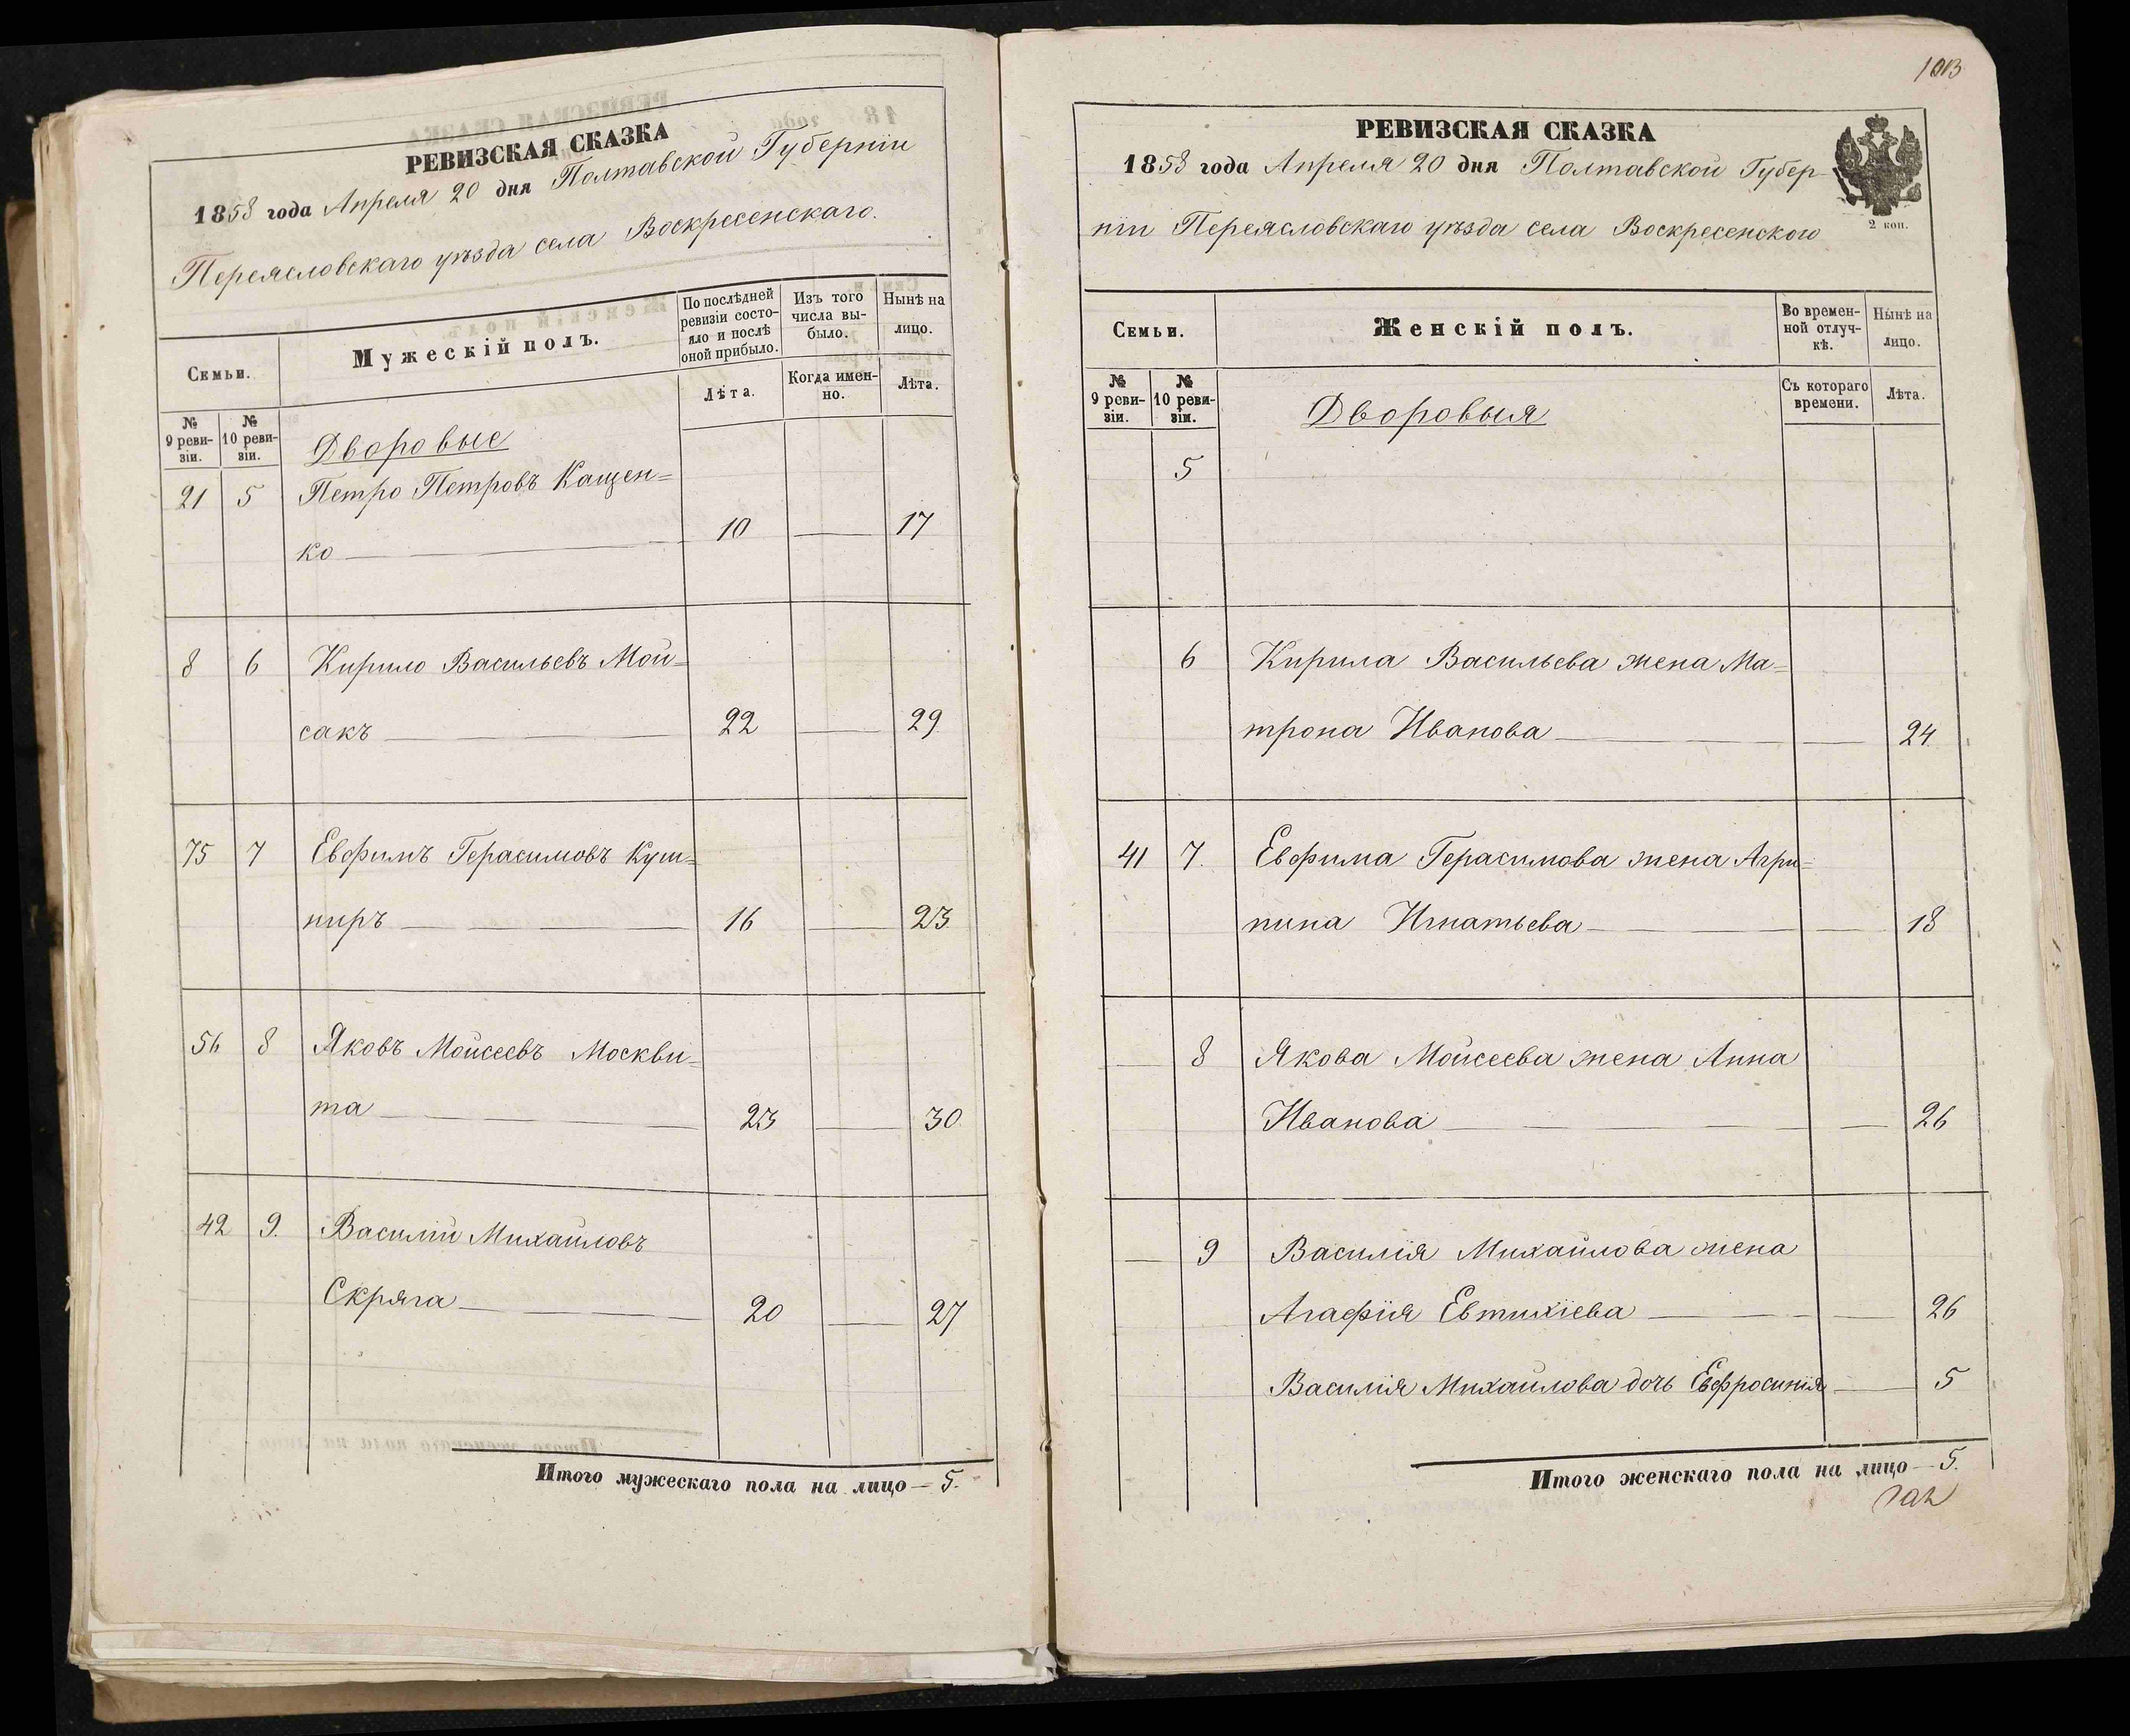 РЕВИЗСКАЯ СКАЗКА
1858 года Апреля 20 дня Полтавской Губерніи
Переясловскаго уѣзда села Воскресенскаго.
Семьи.
Мужескій полъ.
По послѣдней ревизіи состояло и послѣ оной прибыло.
Изъ того числа выбыло.
Нынѣ на лицо.
№ 9 ревизіи.
№ 10 ревизіи.
Лѣта.
Когда именно.
Лѣта.
Дворовые
21 5 Петро Петровъ Кащен=
ко 10 17
8 6 Кирило Васильевъ Мой=
сакъ 22 29
75 7 Евфимъ Герасимовъ Куш=
ниръ 16 23
56 8 Яковъ Мойсеевъ Москви=
та 23 30
42 9. Василій Михайловъ
Скряга 20 27
Итого мужескаго пола на лицо — 5.
103
РЕВИЗСКАЯ СКАЗКА
1858 года Апреля 20 дня Полтавской Губер-
ніи Переясловскаго уѣзда села Воскресенского
2 коп.
Семьи.
Женскій полъ.
Во временной отлучкѣ.
Нынѣ на лицо.
№ 9 ревизіи.
№ 10 ревизіи.
Съ котораго времени.
Лѣта.
Дворовыя
5
6 Кирила Васильева жена Ма=
трона Иванова 24
41 7. Евфима Герасимова жена Агри=
пина Игнатьева 18
8 Якова Мойсеева жена Анна
Иванова 26
9 Василія Михайлова жена
Агафія Евтихіева 26
Василія Михайлова дочь Евфросинія 5
Итого женскаго пола на лицо — 5.